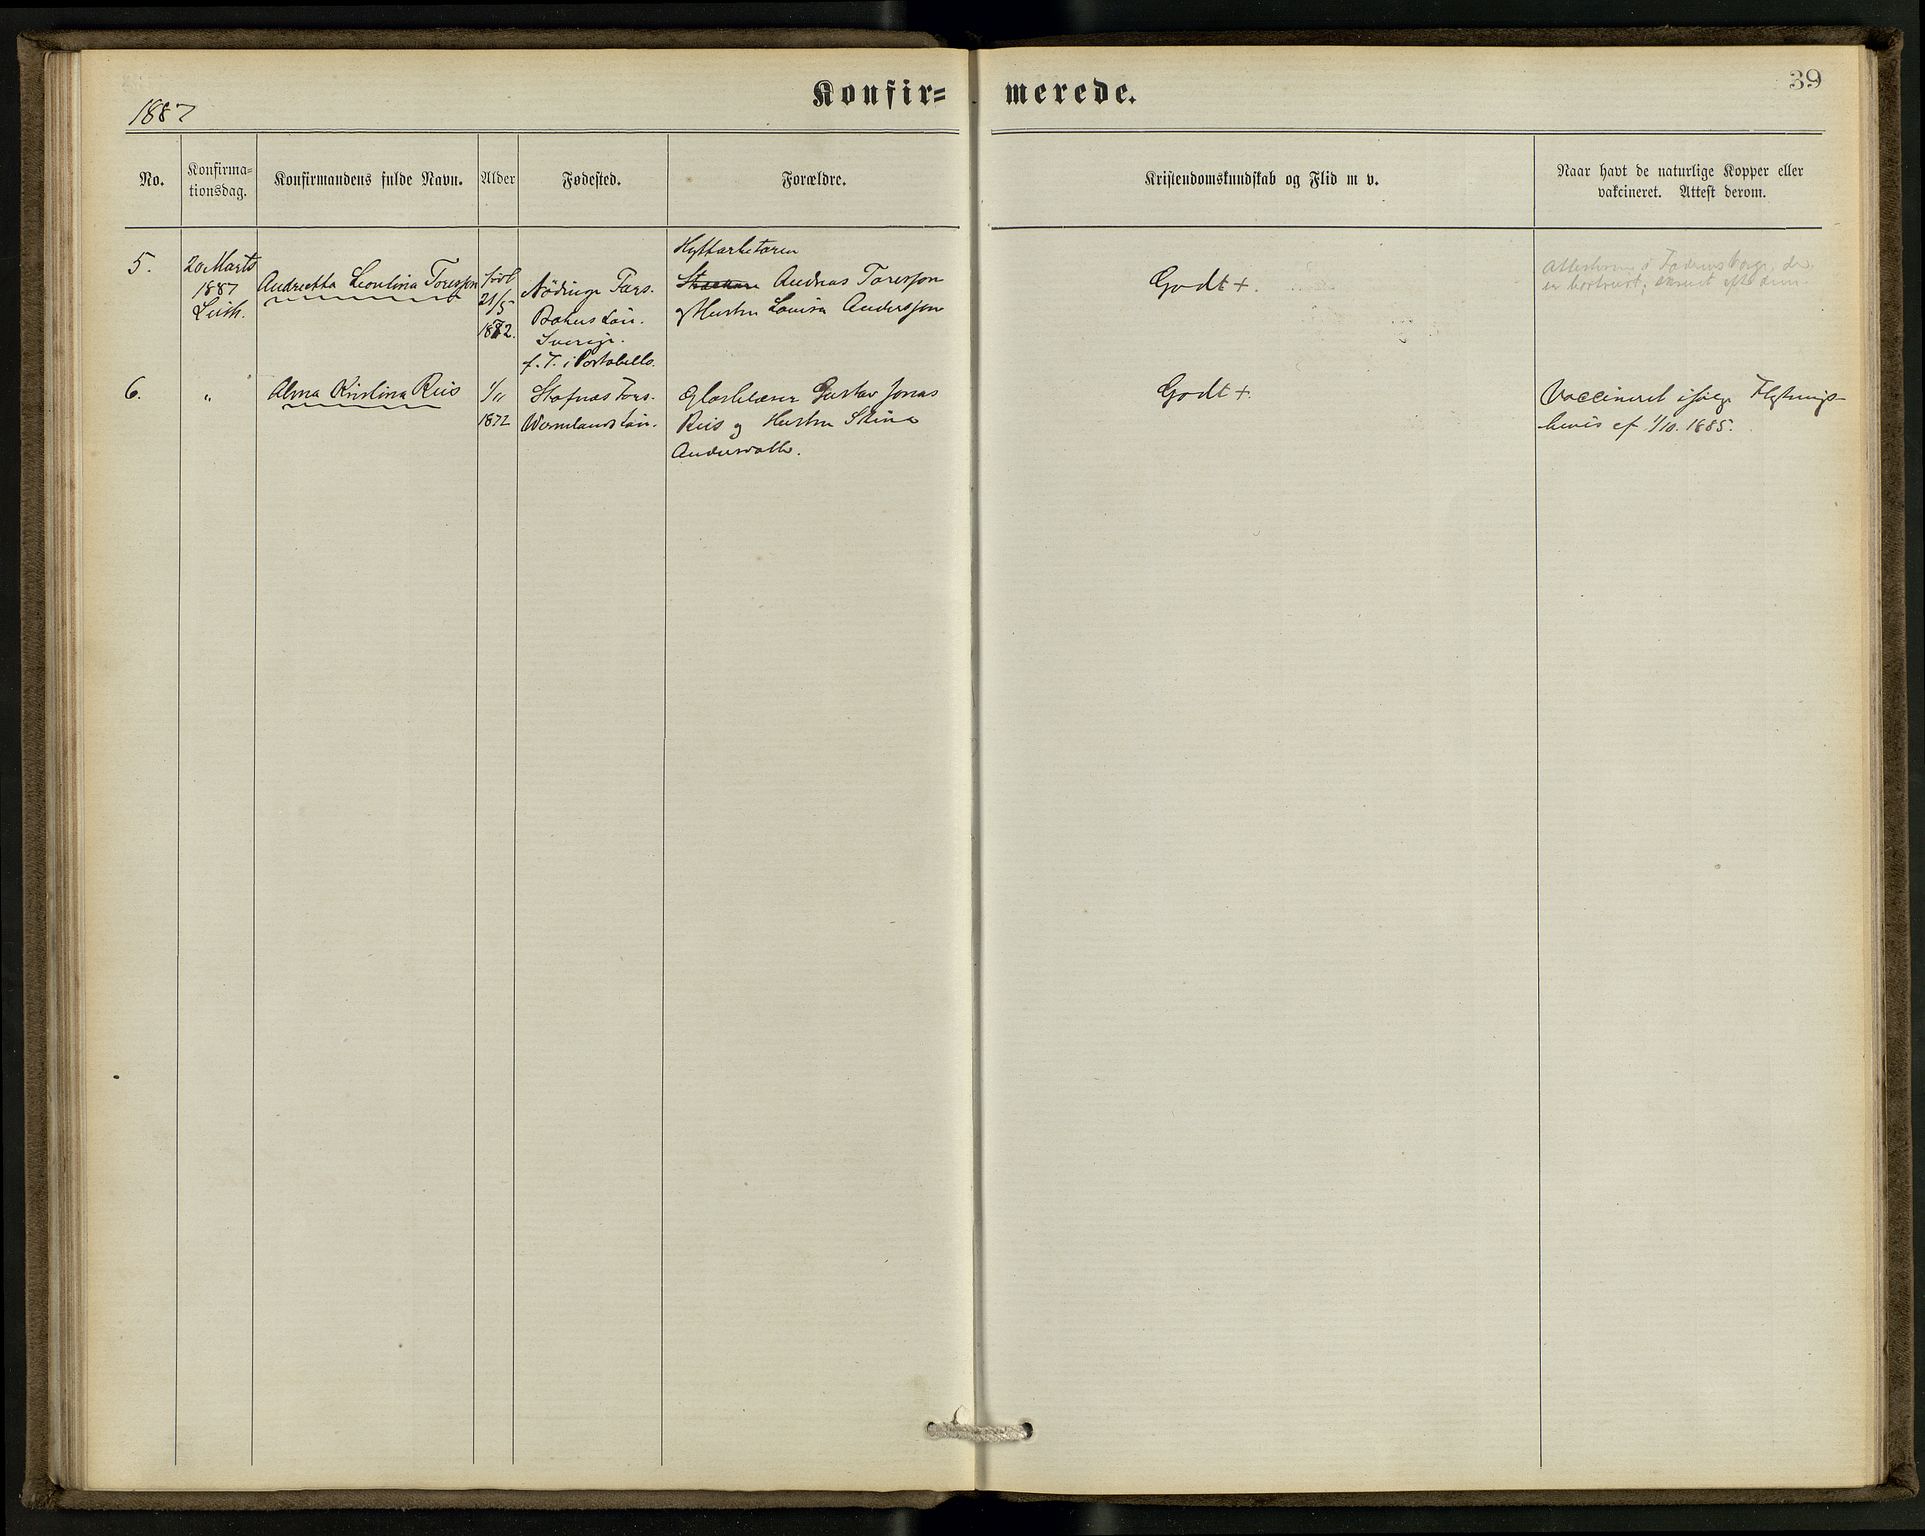 1887
Konfir=
merede.
39
No.
Konfirma=
tionsdag.
Konfirmandens fulde Navn.
Alder
Fødested.
Forældre.
Kristendomskundskab og Flid m v.
Naar havt de naturlige Kopper eller
vakcineret. Attest derom.
5.
20 Marts
1887
Leith.
Andreetta Leontina Toresson
født
21/5
1872.
Nödinge Førs.
Bohus Län.
Sverige.
f. T. i Portobello.
Hyttarbetaren
Andreas Toresson
og Hustru Lovisa Andersson
Godt +.
er bortreist;
6.
"
Alma Kristina Reis
1/11
1872
Stafnäs Førs.
Wermlands Län.
Glasblæser Gustav Jonas
Reis og Hustru Stina
Godt +.
Vaccineret ifølge Flytnings-
bevis af 1/10. 1885.